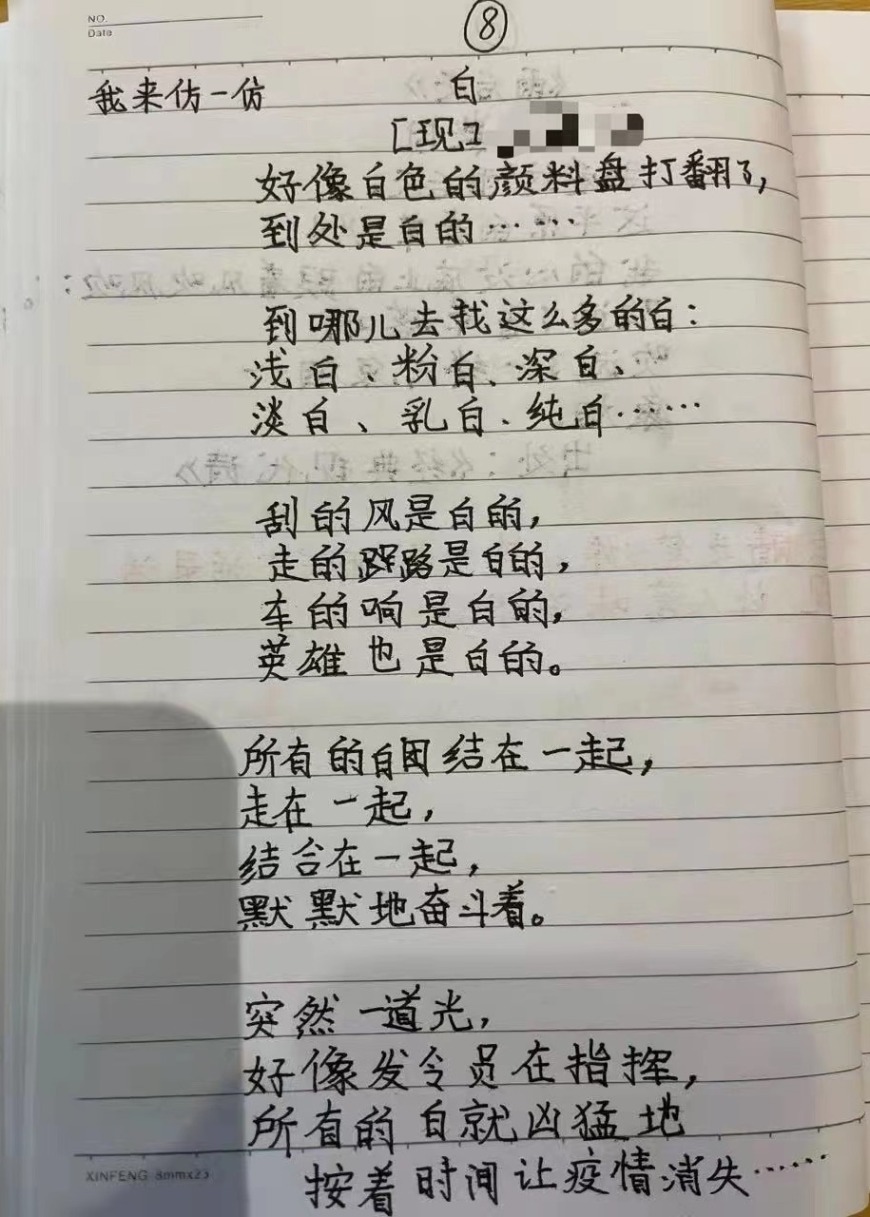 NO.
Date
⑧
我来仿一仿 白
[现]
好像白色的颜料盘打翻了,
到处是白的……
到哪儿去找这么多的白:
浅白、粉白、深白、
淡白、乳白、纯白……
刮的风是白的,
走的路是白的,
车的响是白的,
英雄也是白的。
所有的白团结在一起,
走在一起,
结合在一起,
默默地奋斗着。
突然一道光,
好像发令员在指挥,
所有的白就凶猛地
按着时间让疫情消失……
出处:《经典现代诗》
XINFENG 8mmx23